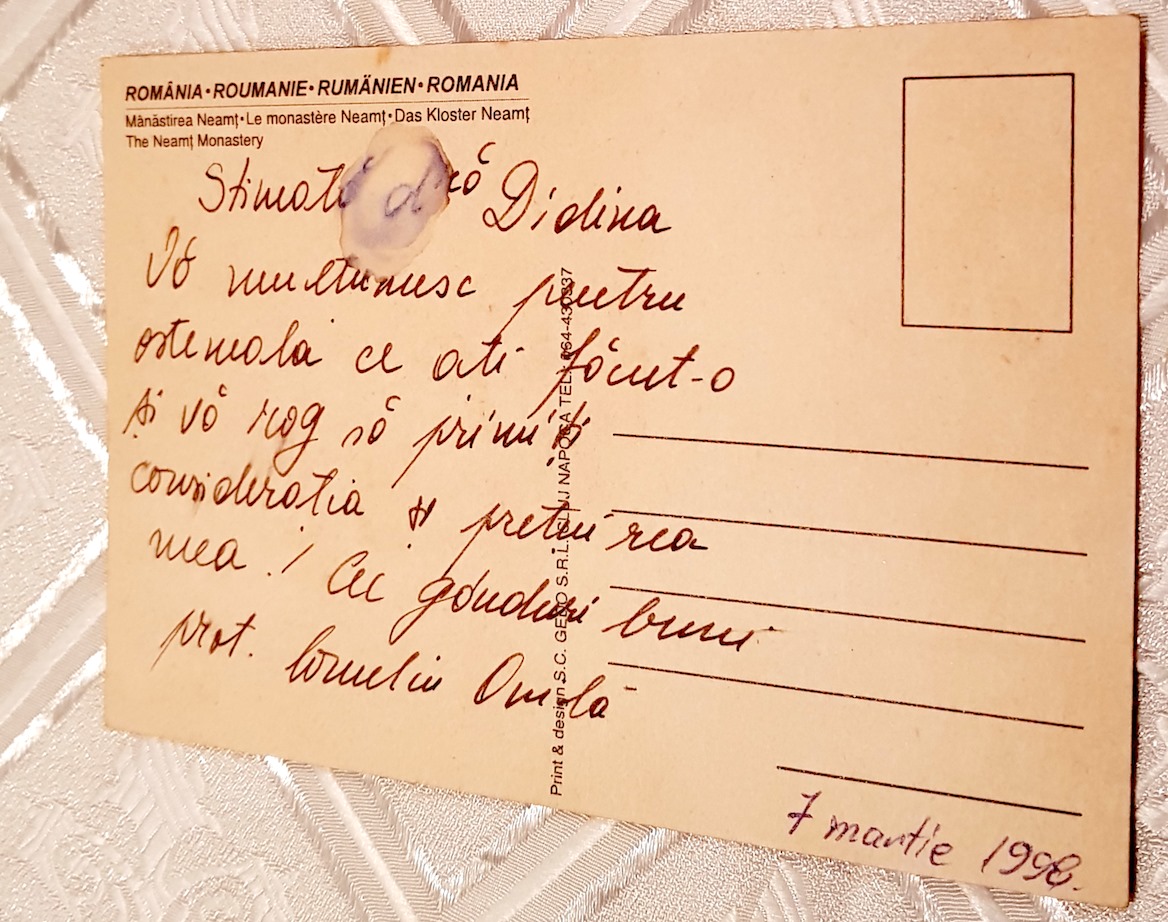 ROMÂNIA • ROUMANIE • RUMÄNIEN • ROMANIA
Mănăstirea Neamţ • Le monastère Neamţ • Das Kloster Neamţ
The Neamţ Monastery
Stimată Didina
Vă multumesc pentru
osteneala ce ati făcut-o
și vă rog să primiți
consideratia și pretuirea
mea! Cu gânduri buni
prot. Corneliu
Print & design S.C. GEDO S.R.L. CLUJ NAPOCA TEL.
7 martie 1998.